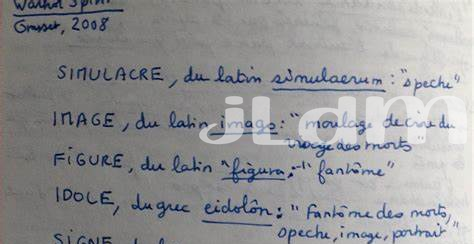 Warhol Spirit
Grasset, 2008
SIMULACRE, du latin simulacrum : "speche"
IMAGE, du latin imago : "moulage de cire du
visage des morts"
FIGURE, du latin "figura, " "fantôme"
IDOLE, du grec eidolôn : "Fantôme des morts,
speche, image, portrait"
jLam